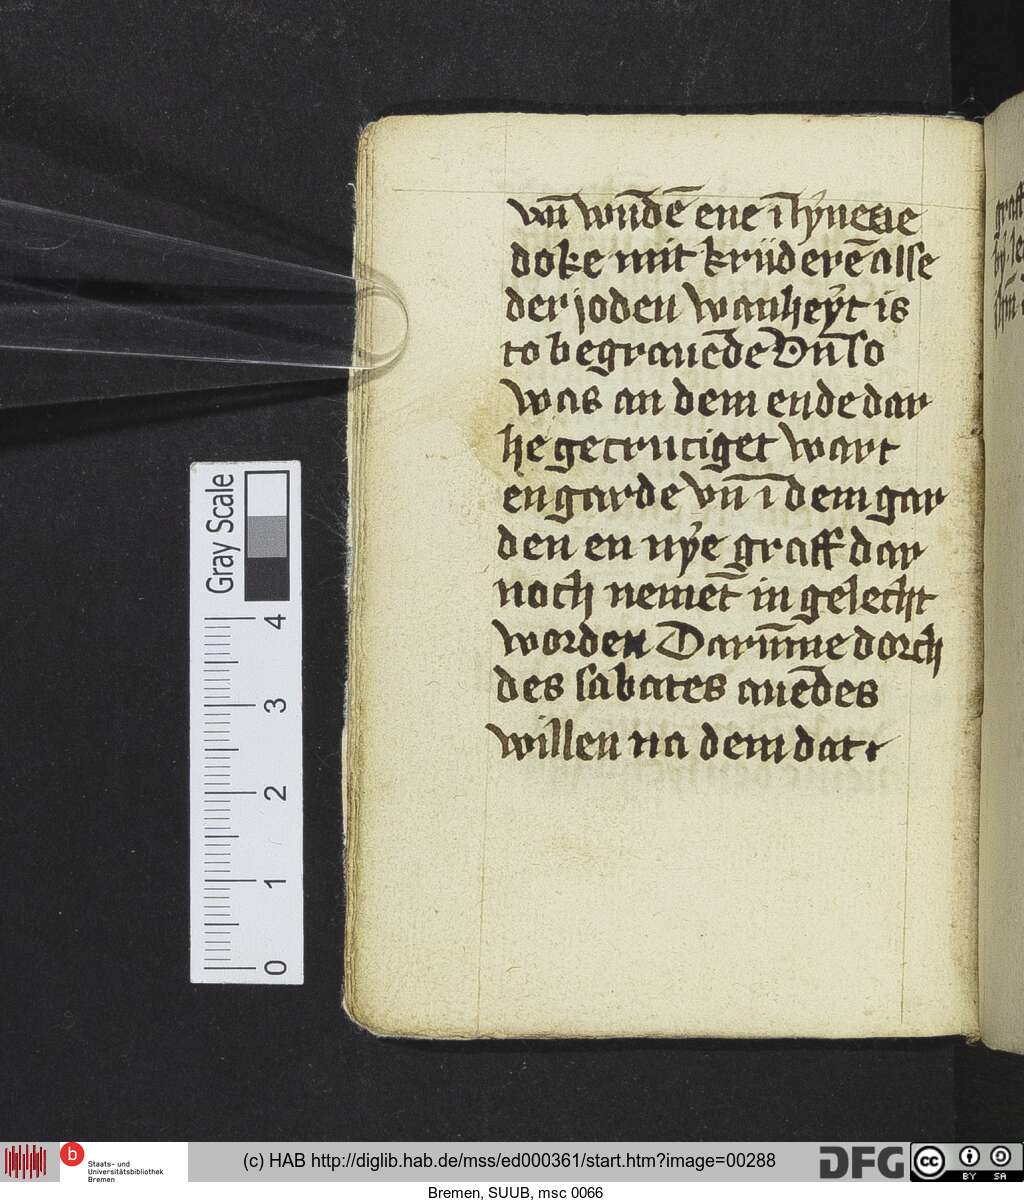 vn̄ wūdē ene ī lẏnene
doke mit krüderē alse
der joden wanheẏt is
to begrauēde Vn̄ so
was an dem ende dar
he gecruciget wart
en garde vn̄ ī dem gar
den en nẏe graff dar
noch nemēt in gelecht
worden Darūme dorch
des sabates auēdes
willen na dem dat
Gray Scale
4
3
2
1
0
graff
Staats- und
Universitätsbibliothek
Bremen
(c) HAB http://diglib.hab.de/mss/ed000361/start.htm?image=00288
DFG
cc
BY SA
Bremen, SUUB, msc 0066